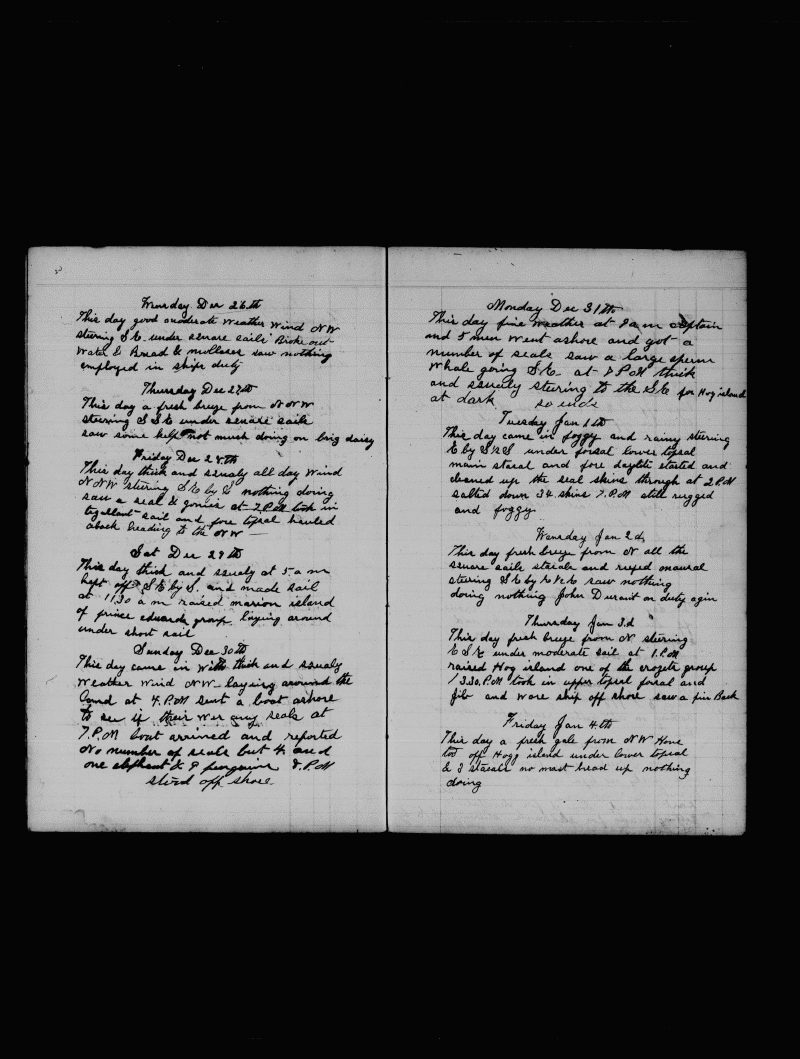 Wensday Dec 26th
This day good moderate Weather Wind NW
stering S E under senare sails Broke out
Water & Bread & mollases saw nothing
employed in ships duty
Thursday Dec 27th
This day a fresh breze from N N W
stering S S E under senare sails
saw some kelp not mush doing on brig daisy
Friday Dec 28th
This day thick and squaly all day Wind
NNW stering SE by S nothing doing
saw a seal & gonies at 7.P.M took in
togallant sail and fore topsal hauled
aback heading to the NW
Sat Dec 29th
This day thick and squaly at 5. a m
kept off SE by S. and made sail
at 11.30 a m raised marion island
of prince edwards group laying around
under short sail
Sunday Dec 30th
This day came in With thick and squaly
Weather Wind NW laying around the
land at 4.P.M sent a boat ashore
to see if their wer any seals at
7.P.M boat arrived and reported
No number of seals but 4 and
one elephant & 8 penguins 8.P.M
stood off shore.
Monday Dec 31th
This day fine Weather at 8 a m captain
and 5 men went ashore and got a
number of seals saw a large sperm
Whale going S.E. at 7 P.M thick
and squaly stering to the S.E for Hog island
at dark so ends
Tuesday Jan 1th
This day came in foggy and rainy stering
E by S½S under forsal lower topsal
main stasal and fore daylite started and
cleaned up the seal skins through at 2 P.M
salted down 34 skins 7.P.M still rugged
and foggy
Wensday Jan 2d
This day fresh breze from N all the
senare sails stasals and refed mansal
stering SE by E½E saw nothing
doing nothing John Durant on duty agin
Thursday Jan 3.d
This day fresh breze from N stering
E S E under moderate sail at 1.P.M
raised Hog island one of the crozets group
/ 3.30.P.M took in upper topsal forsal and
jib and wore ship off shore saw a fin Back
Friday Jan 4th
This day a fresh gale from N W Hove
too off Hogg island under lower topsal
& 3 stasals no mast head up nothing
doing